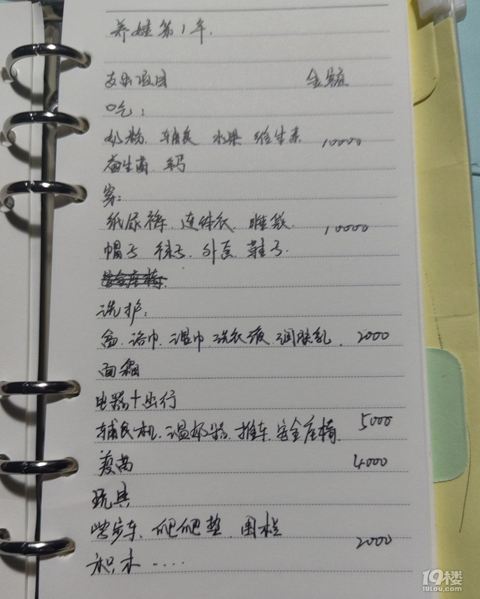 养娃第1年.
支出项目 金额
吃:
奶粉、辅食 水果 维生素 10000
益生菌 钙
穿:
纸尿裤、连体衣、睡袋、 10000
帽子 袜子、外套、鞋子.
安全座椅
洗护:
盆、浴巾、湿巾、洗衣液、润肤乳、 2000
面霜
电器+出行
辅食机、温奶器、推车、安全座椅. 5000
疫苗 4000
玩具
学步车、爬爬垫、围栏
积木.... 2000
19楼
19lou.com